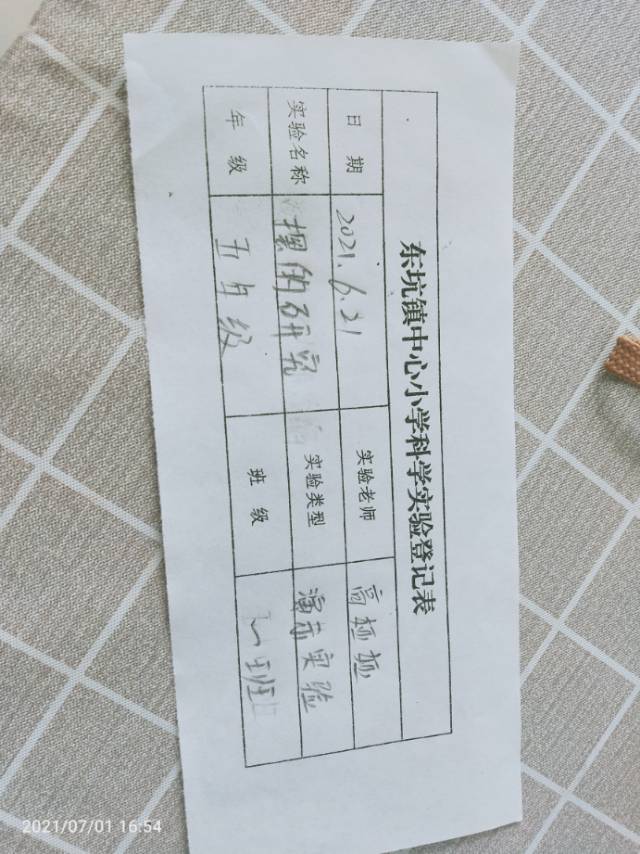 东坑镇中心小学科学实验登记表
日 期 2021.6.21 实验老师 高
实验名称 摆的研究 实验类型 演示实验
年 级 五年级 班 级 班
2021/07/01 16:54